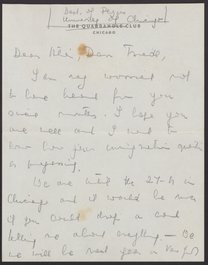 Dept. of Physics
University of Chicago
THE QUADRANGLE CLUB
CHICAGO
Dear Dear
I am very worried not
to have heard from you
since I hope you
are well and I want to
know how your immigration
is progressing.
We are until the 27th in
Chicago and it would be nice
if you could drop a card
telling me about everything - 
we will be next year in